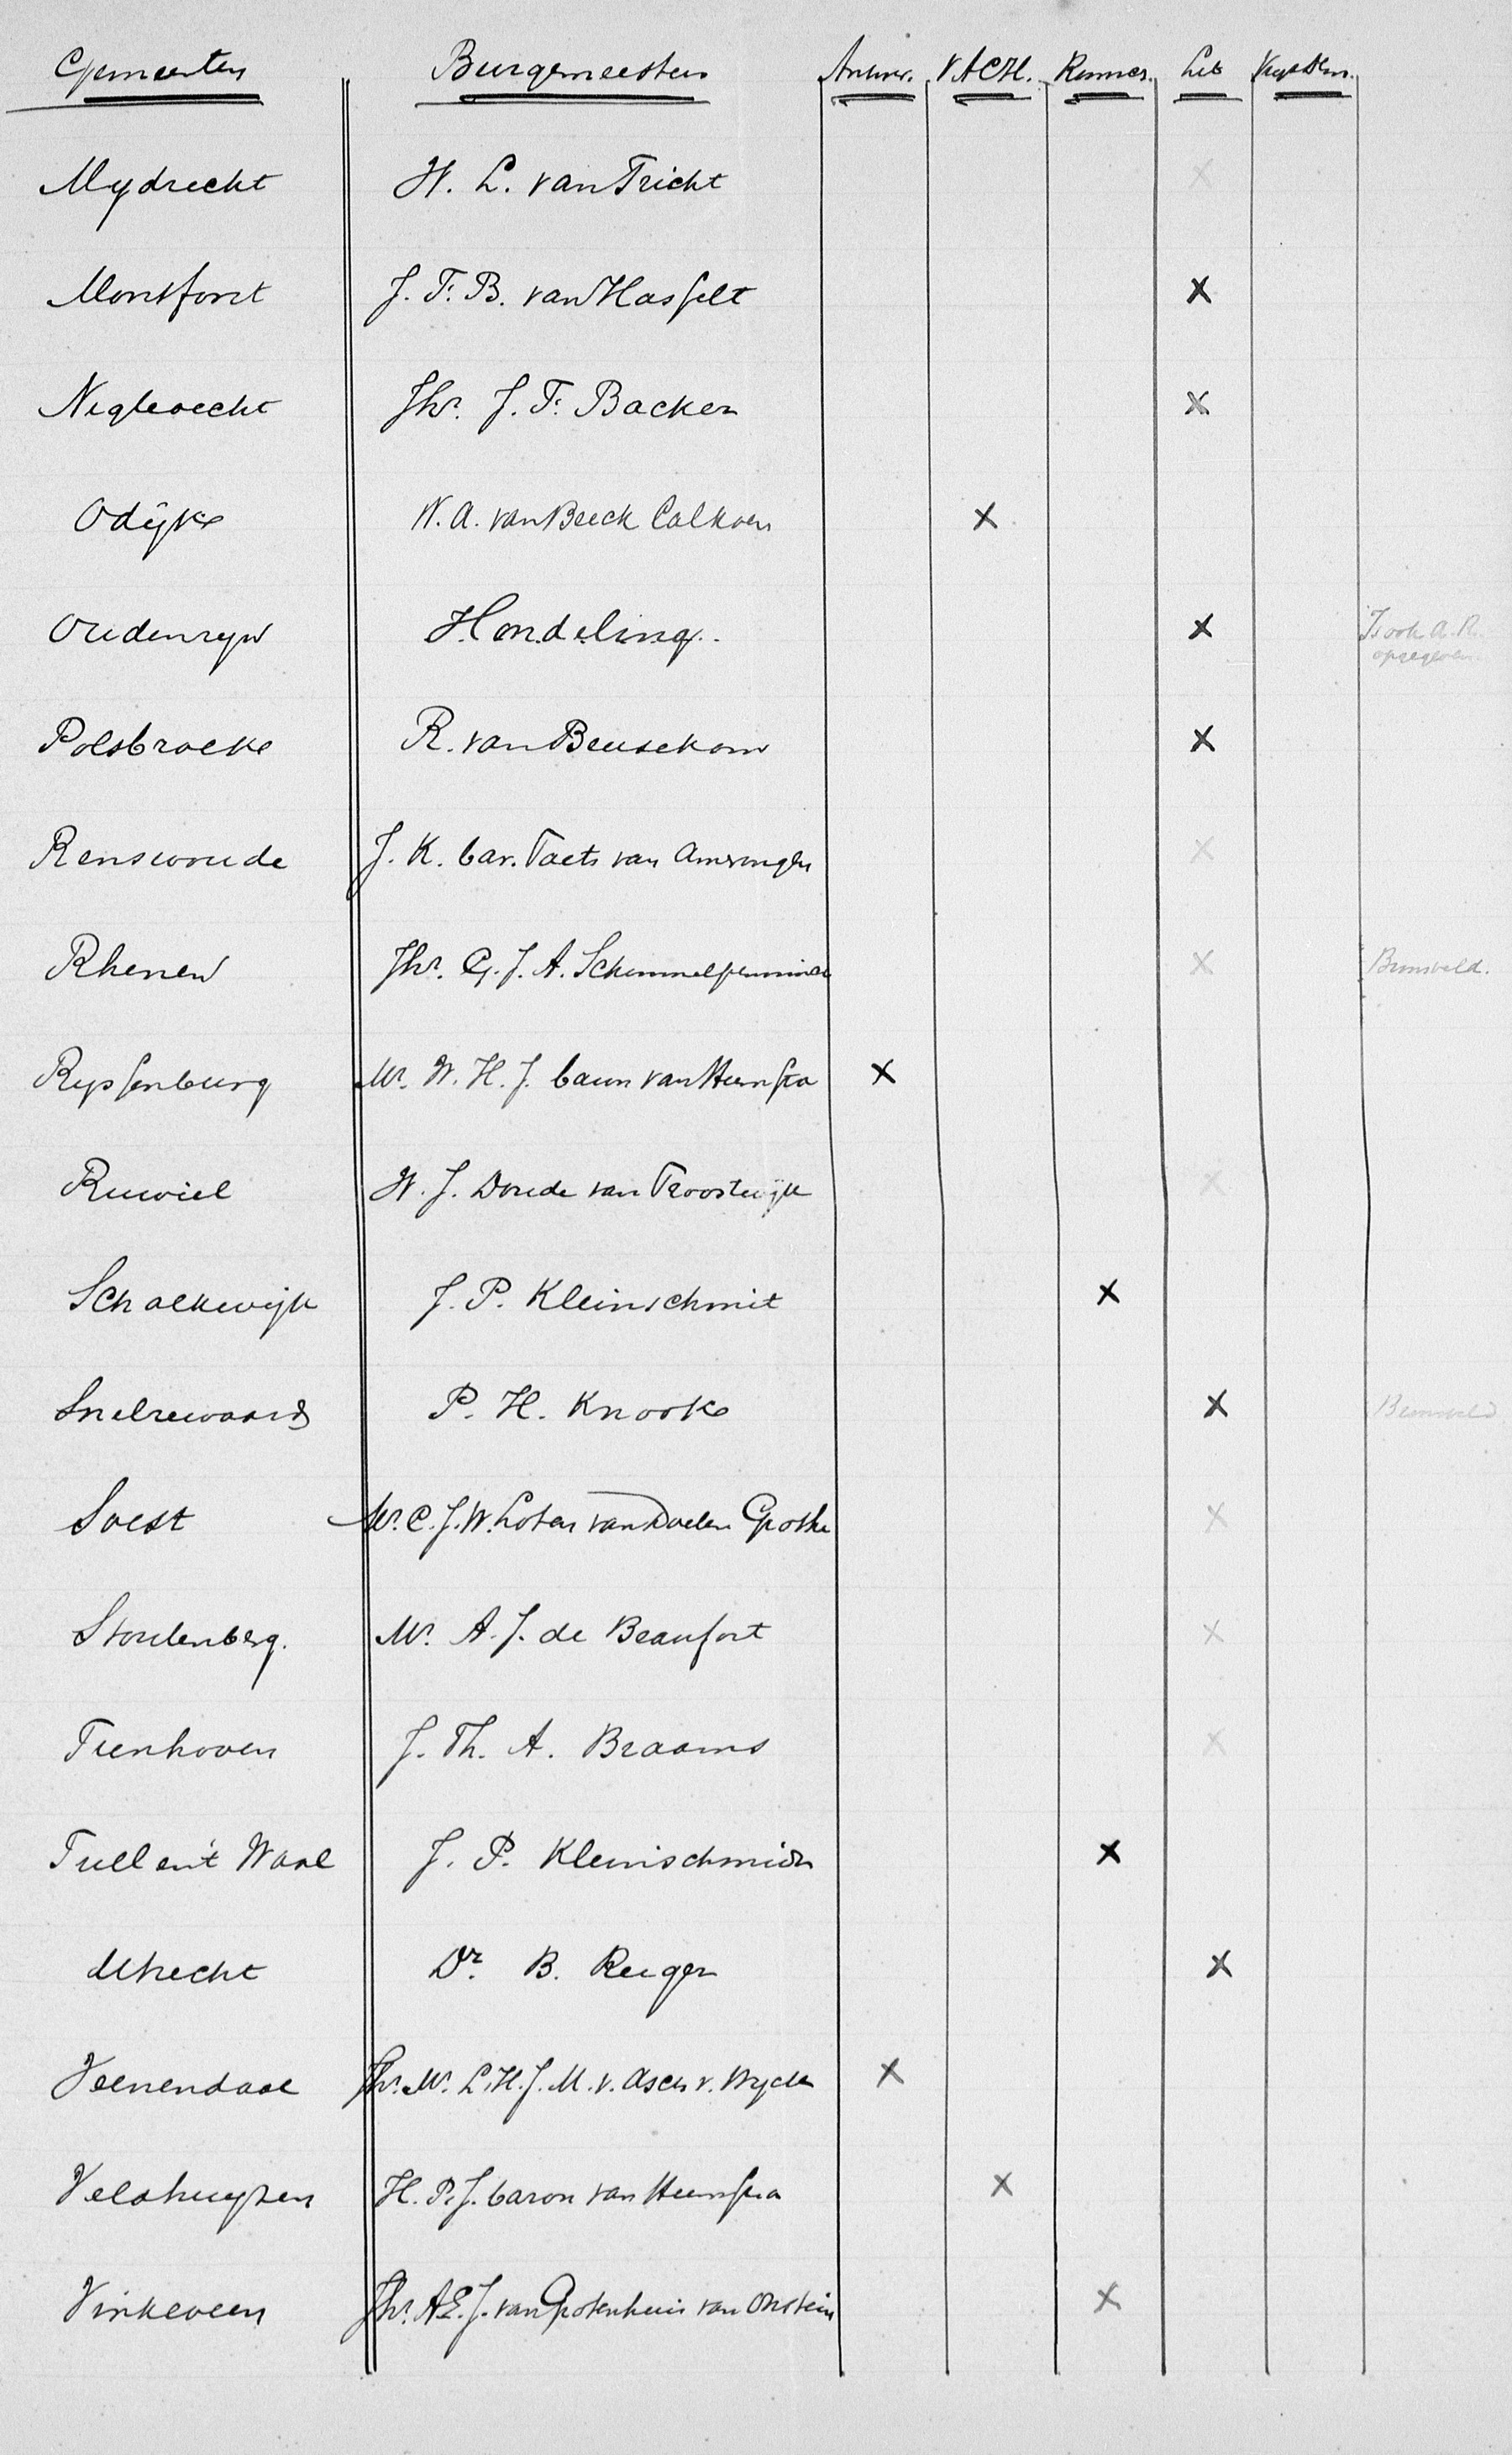 Gemeenten Burgemeesters Antirev. V.A.C.H. Roomsch. Lib Vryz Dem.
Mydrecht H. L. van Tricht X
Montfoort J. F. B. van Hasselt X
Nigtevecht Jhr. J. F. Backer X
Odijk W. A. van Beeck Calkoen X
Oudenryn Hondeling. X Is ook A. R. opgegeven
Polsbroek R. van Beusekom X
Renswoude J. K. bar. Taets van Amerongen X
Rhenen Jhr. G. J. A. Schimmelpenninck X
Rysenburg Mr. W. H. J. baron van Heemstra X
Ruwiel W. J. Doude van Troostwijk X
Schalkwijk J. P. Kleinschmit X
Snelrewaard P. H. Knook X
Soest Mr. C. J. W. Loten van Doelen Grothe X
Stoutenberg. Mr. A. J. de Beaufort X
Tienhoven J. Th. A. Braams X
Tull en 't Waal J. P. Kleinschmidt X
Utrecht Dr. B. Reiger X
Veenendaal Jhr. Mr. L. H. J. M. v. Asch v. Wyck X
Veldhuyzen H. P. J. baron van Heemstra X
Vinkeveen Jhr. A. E. J. van Grotenhuis van Onstein X